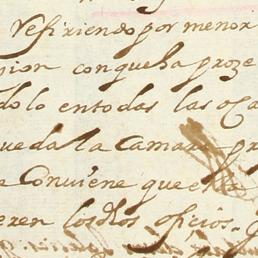 refiriendo por menor
sion con que ha proze
do lo en todas las oca
queda la Camara pr
e Conviene que
eren los dhos oficios. q